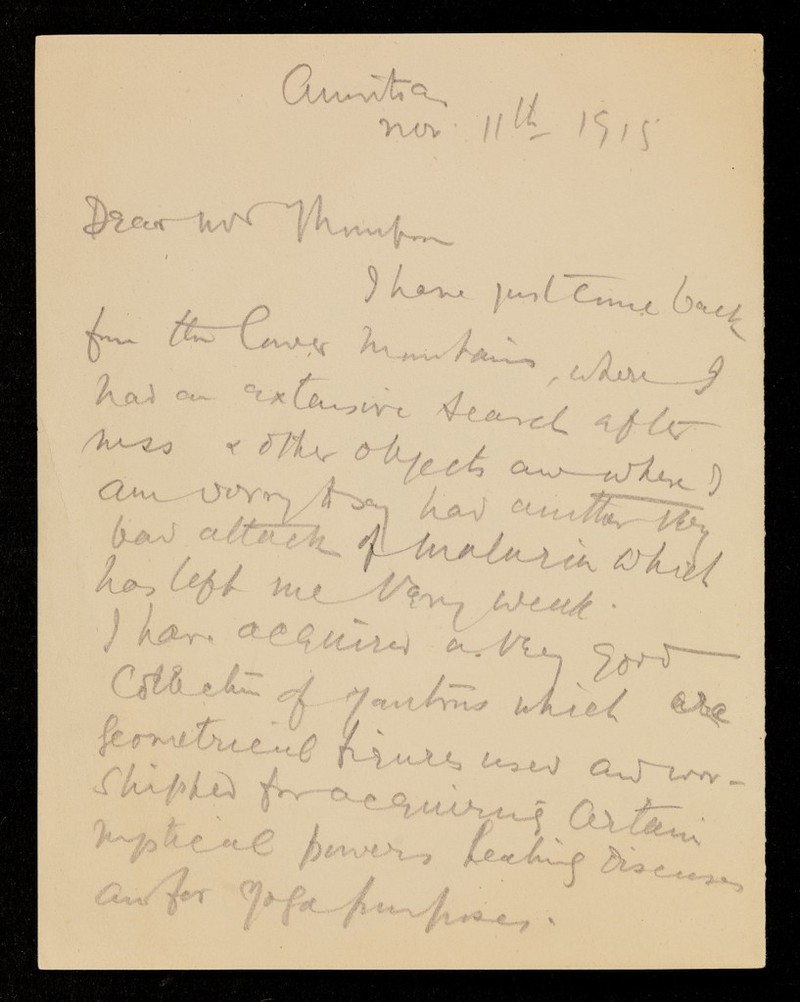 Amritsar
Nov. 11th 1915
Dear Mr Thompson
I have just come back
from the lower mountains, where I
had an extensive search after
mss & other objects and where I
am sorry to say had another very
bad attack of malaria which
has left me very weak.
I have acquired a very good
Collection of yantras which are
geometrical figures used and wor-
shipped for acquiring certain
mystical powers healing diseases
and for yoga purposes.